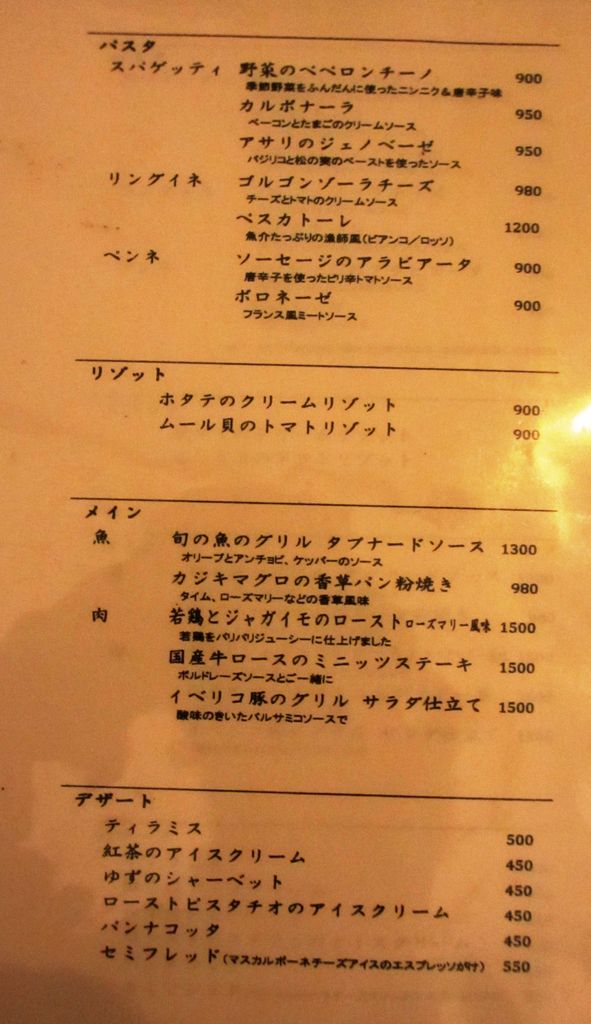 パスタ
スパゲッティ 野菜のペペロンチーノ 900
季節野菜をふんだんに使ったニンニク＆唐辛子味
カルボナーラ 950
ベーコンとたまごのクリームソース
アサリのジェノベーゼ 950
バジリコと松の実のペーストを使ったソース
リングイネ ゴルゴンゾーラチーズ 980
チーズとトマトのクリームソース
ペスカトーレ 1200
魚介たっぷりの漁師風（ビアンコ／ロッソ）
ペンネ ソーセージのアラビアータ 900
唐辛子を使ったピリ辛トマトソース
ボロネーゼ 900
フランス風ミートソース
リゾット
ホタテのクリームリゾット 900
ムール貝のトマトリゾット 900
メイン
魚 旬の魚のグリル タプナードソース 1300
オリーブとアンチョビ、ケッパーのソース
カジキマグロの香草パン粉焼き 980
タイム、ローズマリーなどの香草風味
肉 若鶏とジャガイモのローストローズマリー風味 1500
若鶏をパリパリジューシーに仕上げました
国産牛ロースのミニッツステーキ 1500
ボルドレーズソースとご一緒に
イベリコ豚のグリル サラダ仕立て 1500
酸味のきいたバルサミコソースで
デザート
ティラミス 500
紅茶のアイスクリーム 450
ゆずのシャーベット 450
ローストピスタチオのアイスクリーム 450
パンナコッタ 450
セミフレッド（マスカルポーネチーズアイスのエスプレッソがけ） 550